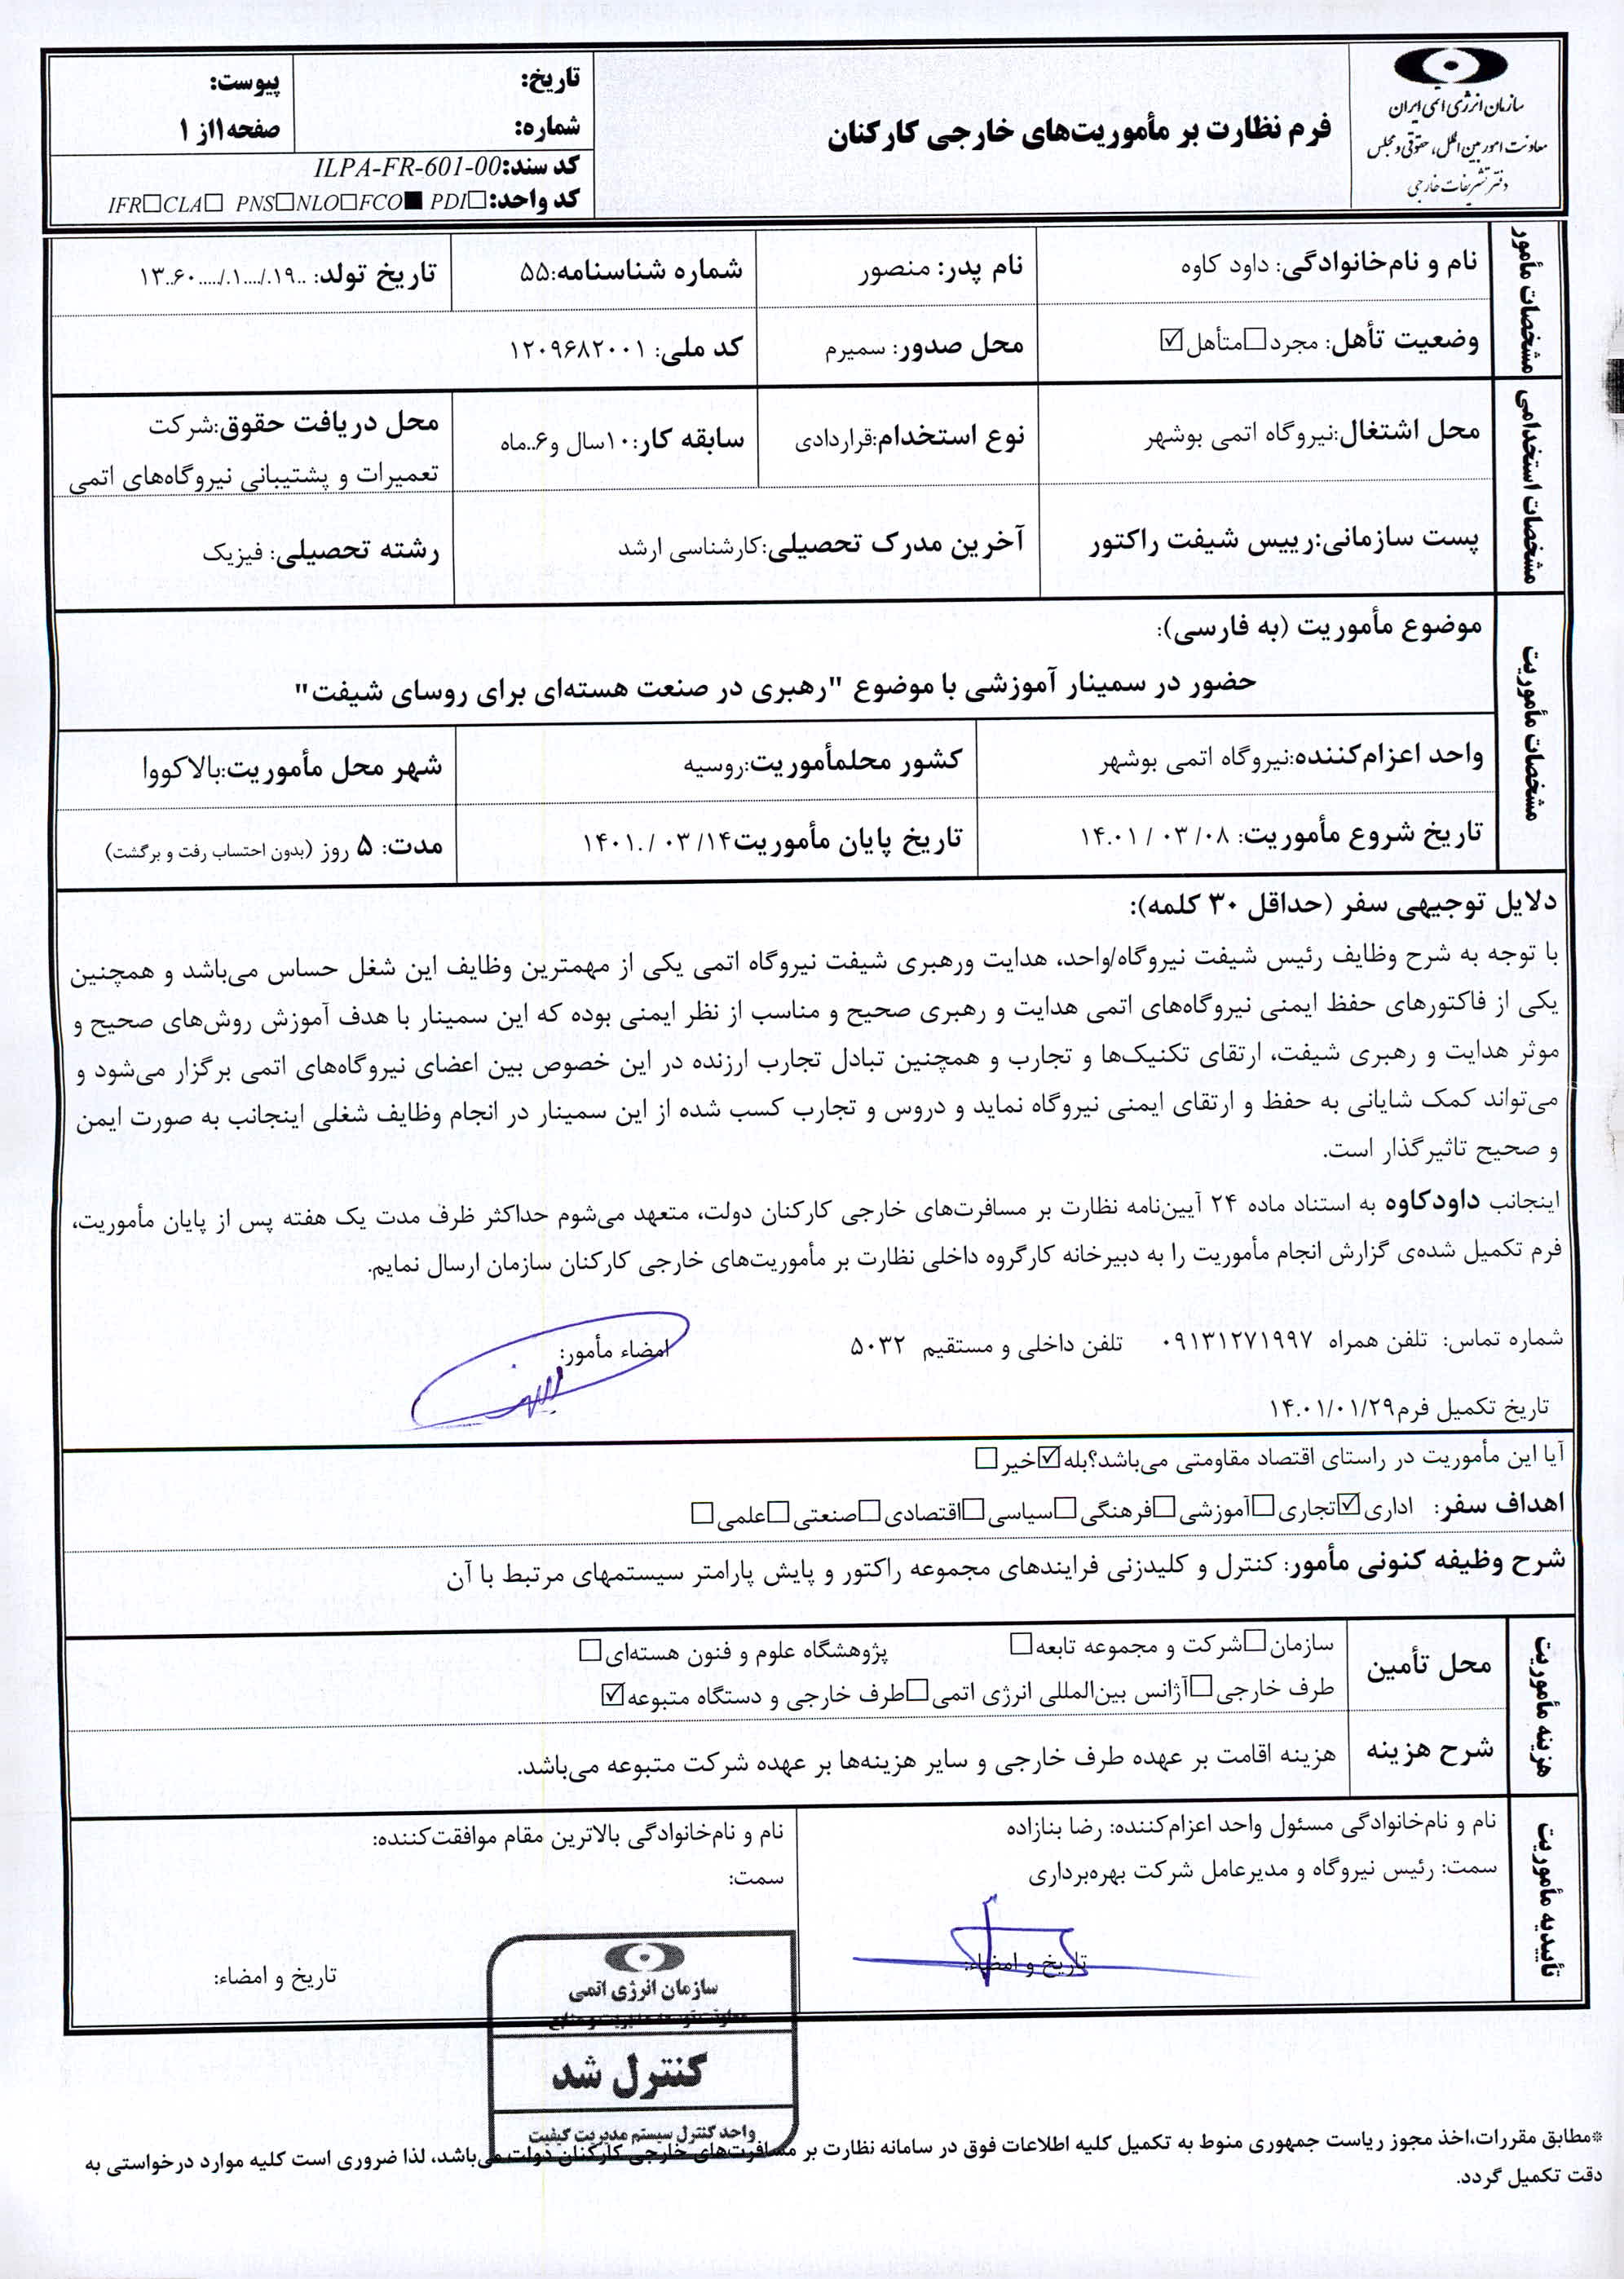 سازمان انرژی اتمی ایران
معاونت امور بین‌الملل، حقوقی و مجلس
دفتر تشریفات خارجی
فرم نظارت بر مأموریت‌های خارجی کارکنان
تاریخ:
شماره:
پیوست:
صفحه۱از ۱
کد سند:ILPA-FR-601-00
کد واحد: IFR☐CLA☐ PNS☐NLO☐FCO■ PDI☐
مشخصات مأمور
نام و نام‌خانوادگی: داود کاوه
نام پدر: منصور
شماره شناسنامه:۵۵
تاریخ تولد: ..۱۹../....۱./.....۱۳..۶۰
وضعیت تأهل: مجرد☐متأهل☑
محل صدور: سمیرم
کد ملی: ۱۲۰۹۶۸۲۰۰۱
مشخصات استخدامی
محل اشتغال:نیروگاه اتمی بوشهر
نوع استخدام:قراردادی
سابقه کار:۱۰سال و۶..ماه
محل دریافت حقوق:شرکت
تعمیرات و پشتیبانی نیروگاه‌های اتمی
پست سازمانی:رییس شیفت راکتور
آخرین مدرک تحصیلی:کارشناسی ارشد
رشته تحصیلی: فیزیک
مشخصات مأموریت
موضوع مأموریت (به فارسی):
حضور در سمینار آموزشی با موضوع "رهبری در صنعت هسته‌ای برای روسای شیفت"
واحد اعزام‌کننده:نیروگاه اتمی بوشهر
کشور محلمأموریت:روسیه
شهر محل مأموریت:بالاکووا
تاریخ شروع مأموریت: ۰۸/ ۰۳ / ۱۴.۰۱
تاریخ پایان مأموریت۱۴/ ۰۳ / .۱۴۰۱
مدت: ۵ روز (بدون احتساب رفت و برگشت)
دلایل توجیهی سفر (حداقل ۳۰ کلمه):
با توجه به شرح وظایف رئیس شیفت نیروگاه/واحد، هدایت ورهبری شیفت نیروگاه اتمی یکی از مهمترین وظایف این شغل حساس می‌باشد و همچنین
یکی از فاکتورهای حفظ ایمنی نیروگاه‌های اتمی هدایت و رهبری صحیح و مناسب از نظر ایمنی بوده که این سمینار با هدف آموزش روش‌های صحیح و
موثر هدایت و رهبری شیفت، ارتقای تکنیک‌ها و تجارب و همچنین تبادل تجارب ارزنده در این خصوص بین اعضای نیروگاه‌های اتمی برگزار می‌شود و
می‌تواند کمک شایانی به حفظ و ارتقای ایمنی نیروگاه نماید و دروس و تجارب کسب شده از این سمینار در انجام وظایف شغلی اینجانب به صورت ایمن
و صحیح تاثیرگذار است.
اینجانب داودکاوه به استناد ماده ۲۴ آیین‌نامه نظارت بر مسافرت‌های خارجی کارکنان دولت، متعهد می‌شوم حداکثر ظرف مدت یک هفته پس از پایان مأموریت،
فرم تکمیل شده‌ی گزارش انجام مأموریت را به دبیرخانه کارگروه داخلی نظارت بر مأموریت‌های خارجی کارکنان سازمان ارسال نمایم.
شماره تماس: تلفن همراه ۰۹۱۳۱۲۷۱۹۹۷ تلفن داخلی و مستقیم ۵۰۳۲
امضاء مأمور:
تاریخ تکمیل فرم۱۴.۰۱/۰۱/۲۹
آیا این مأموریت در راستای اقتصاد مقاومتی می‌باشد؟بله☑خیر☐
اهداف سفر: اداری☑تجاری☐آموزشی☐فرهنگی☐سیاسی☐اقتصادی☐صنعتی☐علمی☐
شرح وظیفه کنونی مأمور: کنترل و کلیدزنی فرایندهای مجموعه راکتور و پایش پارامتر سیستمهای مرتبط با آن
هزینه مأموریت
محل تأمین
سازمان☐شرکت و مجموعه تابعه☐ پژوهشگاه علوم و فنون هسته‌ای☐
طرف خارجی☐آژانس بین‌المللی انرژی اتمی☐طرف خارجی و دستگاه متبوعه☑
شرح هزینه
هزینه اقامت بر عهده طرف خارجی و سایر هزینه‌ها بر عهده شرکت متبوعه می‌باشد.
تأییدیه مأموریت
نام و نام‌خانوادگی مسئول واحد اعزام‌کننده: رضا بنازاده
سمت: رئیس نیروگاه و مدیرعامل شرکت بهره‌برداری
تاریخ و امضاء:
نام و نام‌خانوادگی بالاترین مقام موافقت‌کننده:
سمت:
تاریخ و امضاء:
سازمان انرژی اتمی
معاونت توسعه مدیریت و منابع
کنترل شد
واحد کنترل سیستم مدیریت کیفیت
*مطابق مقررات،اخذ مجوز ریاست جمهوری منوط به تکمیل کلیه اطلاعات فوق در سامانه نظارت بر مسافرت‌های خارجی کارکنان دولت می‌باشد، لذا ضروری است کلیه موارد درخواستی به
دقت تکمیل گردد.